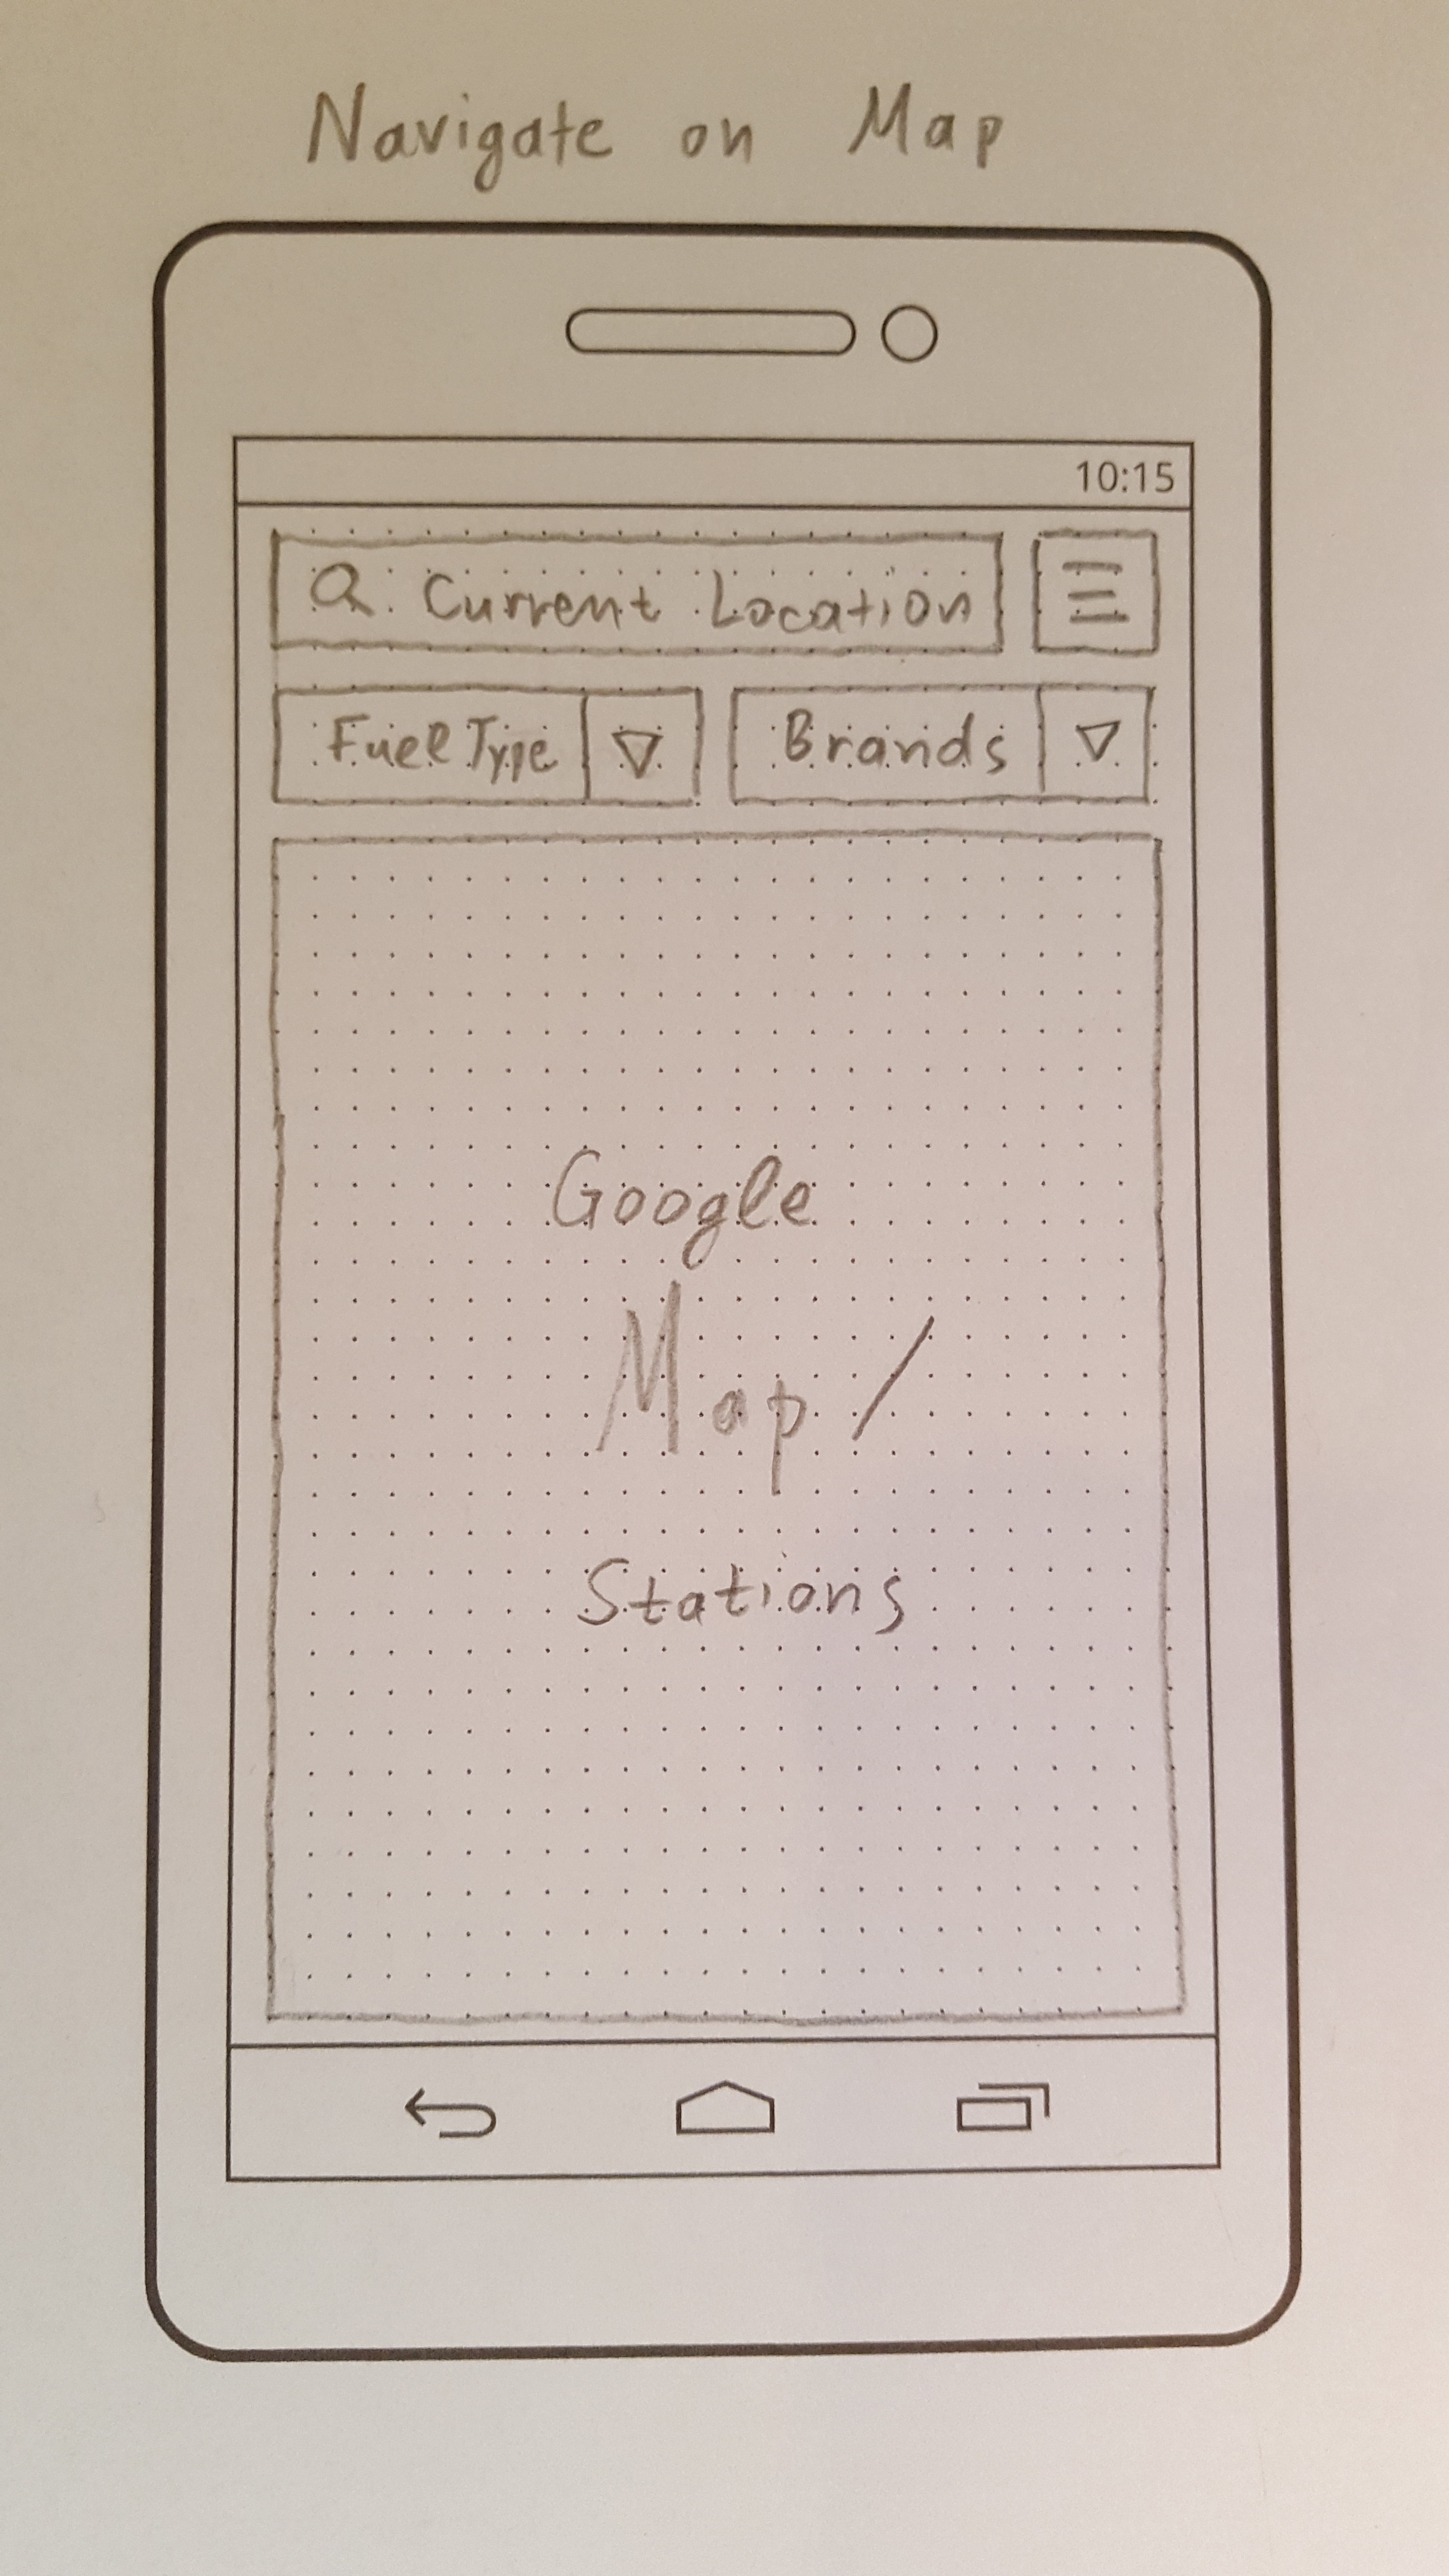 Navigate on Map
10:15
Current Location
Fuel Type
Brands
Google
Map /
Stations